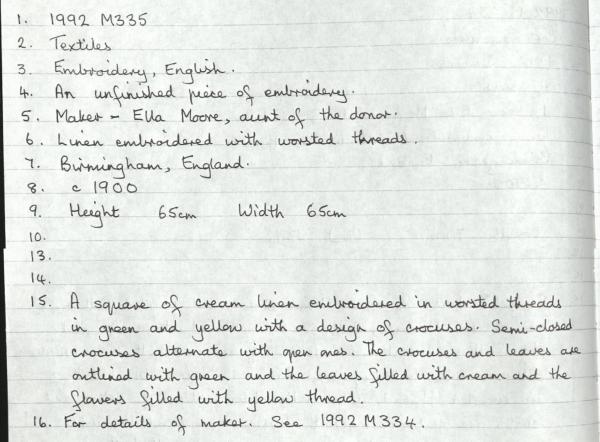 1. 1992 M335
2. Textiles
3. Embroidery, English.
4. An unfinished piece of embroidery.
5. Maker - Ella Moore, aunt of the donor.
6. Linen embroidered with worsted threads.
7. Birmingham, England.
8. c 1900
9. Height 65cm Width 65cm
10.
13.
14.
15. A square of cream linen embroidered in worsted threads
in green and yellow with a design of crocuses. Semi-closed
crocuses alternate with open ones. The crocuses and leaves are
outlined with green and the leaves filled with cream and the
flowers filled with yellow thread.
16. For details of maker. See 1992 M334.